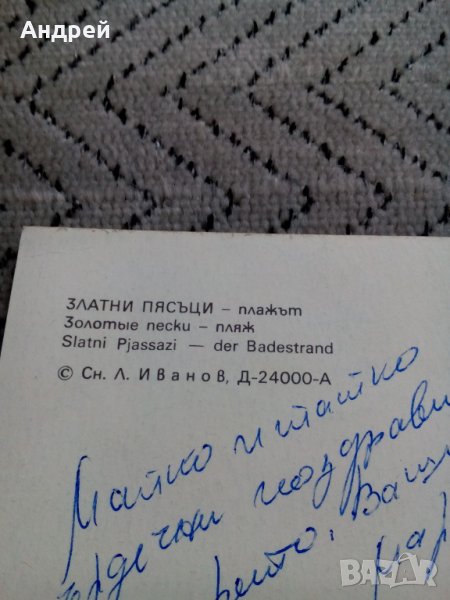 Андрей
ЗЛАТНИ ПЯСЪЦИ – плажът
Золотые пески – пляж
Slatni Pjassazi — der Badestrand
© Сн. Л. Иванов, Д-24000-А
Майко и татко
поздрави
Ваш
bazar.bg